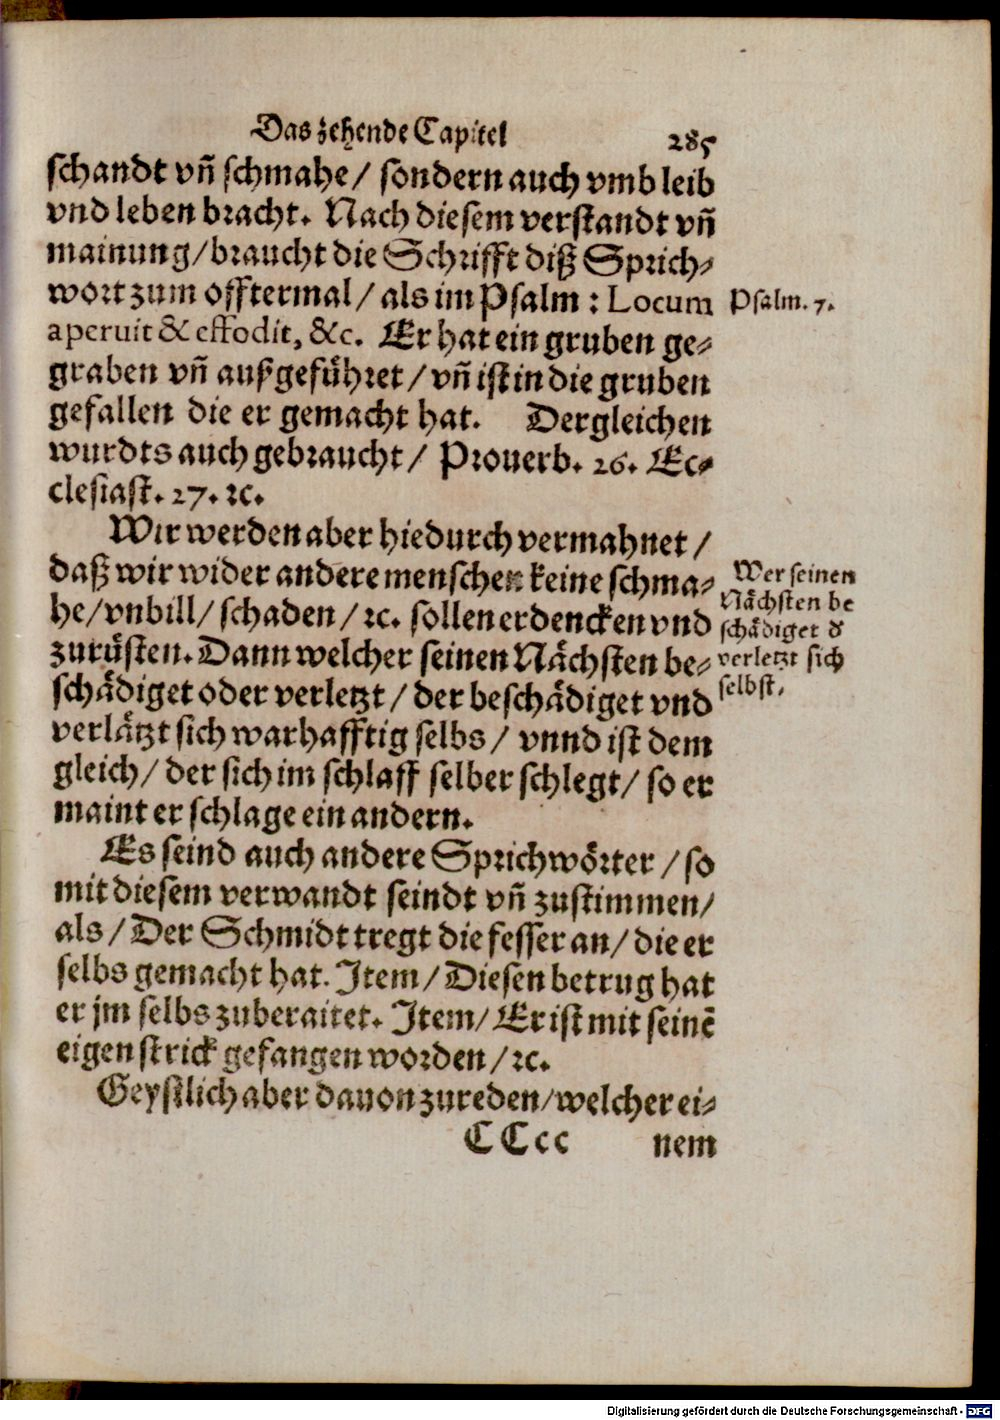 Das zehende Capitel 285
schandt vñ schmahe / sondern auch vmb leib
vnd leben bracht. Nach diesem verstandt vñ
mainung / braucht die Schrifft diß Sprich-
wort zum offtermal / als im Psalm : Locum
Psalm. 7.
aperuit & effodit, &c. Er hat ein gruben ge-
graben vñ außgeführet / vñ ist in die gruben
gefallen die er gemacht hat. Dergleichen
wurdts auch gebraucht / Prouerb. 26. Ec-
clesiast. 27. ꝛc.
Wir werden aber hiedurch vermahnet /
daß wir wider andere menschen keine schma-
he / vnbill / schaden / ꝛc. sollen erdencken vnd
zurüsten. Dann welcher seinen Nächsten be-
schädiget oder verletzt / der beschädiget vnd
verlätzt sich warhafftig selbs / vnnd ist dem
gleich / der sich im schlaff selber schlegt / so er
maint er schlage ein andern.
Wer seinen
Nächsten be
schädiget d
verletzt sich
selbst.
Es seind auch andere Sprichwörter / so
mit diesem verwandt seindt vñ zustimmen /
als / Der Schmidt tregt die fesser an / die er
selbs gemacht hat. Item / Diesen betrug hat
er jm selbs zuberaitet. Item / Er ist mit seinē
eigen strick gefangen worden / ꝛc.
Geystlich aber dauon zureden / welcher ei-
CCcc nem
Digitalisierung gefördert durch die Deutsche Forschungsgemeinschaft - DFG